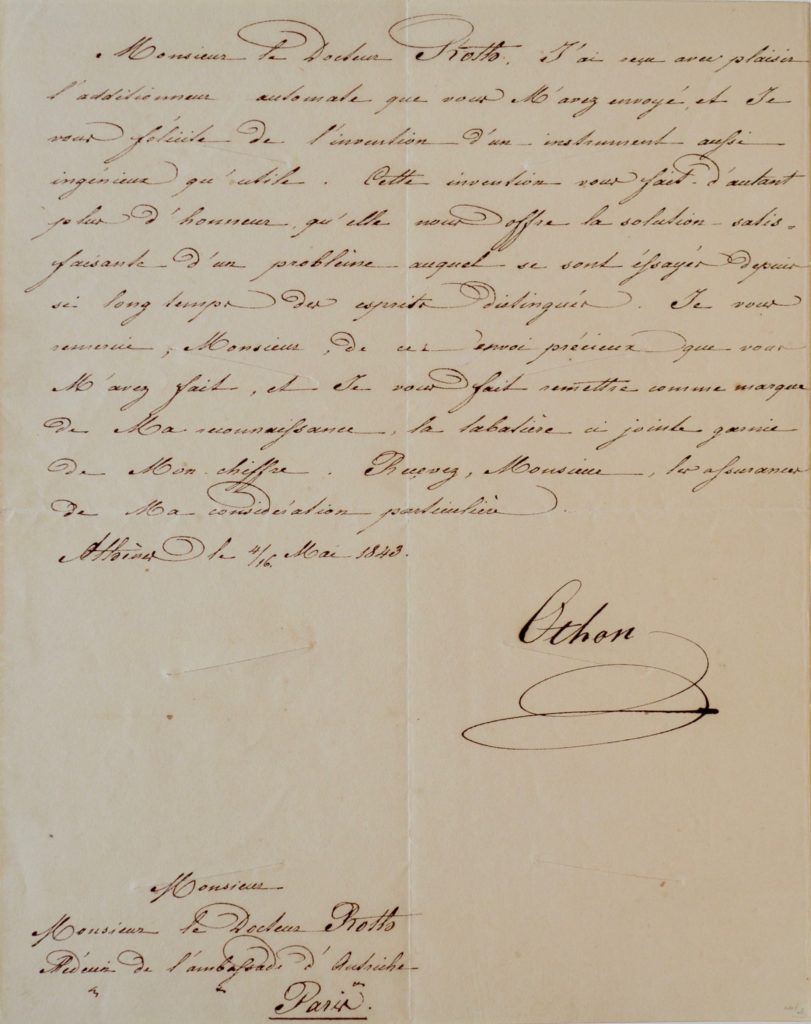 Monsieur le Docteur Roth. J'ai reçu avec plaisir
l'additionneur automate que vous M'avez envoyé, et Je
vous félicite de l'invention d'un instrument aussi
ingénieux qu'utile. Cette invention vous fait d'autant
plus d'honneur, qu'elle nous offre la solution satis=
faisante d'un problème auquel se sont éssayés depuis
si long temps des esprits distingués. Je vous
remercie, Monsieur, de cet envoi précieux que vous
M'avez fait, et Je vous fait remettre comme marque
de Ma reconnaissance, la tabatière ci jointe garnie
de Mon chiffre. Recevez, Monsieur, les assurances
de Ma considération particulière.
Athènes le 4/16. Mai 1843.
Othon
Monsieur
Monsieur le Docteur Roth
Médecin de l'ambassade d'Autriche
" " "
Paris.